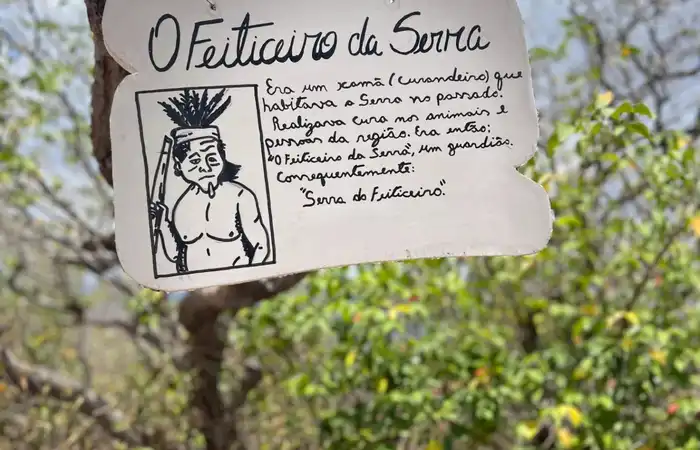 O Feiticeiro da Serra
Era um xamã (curandeiro) que
habitava a Serra no passado.
Realizava cura nos animais e
pessoas da região. Era então;
"O Feiticeiro da Serra", um guardião.
Consequentemente:
"Serra do Feiticeiro".